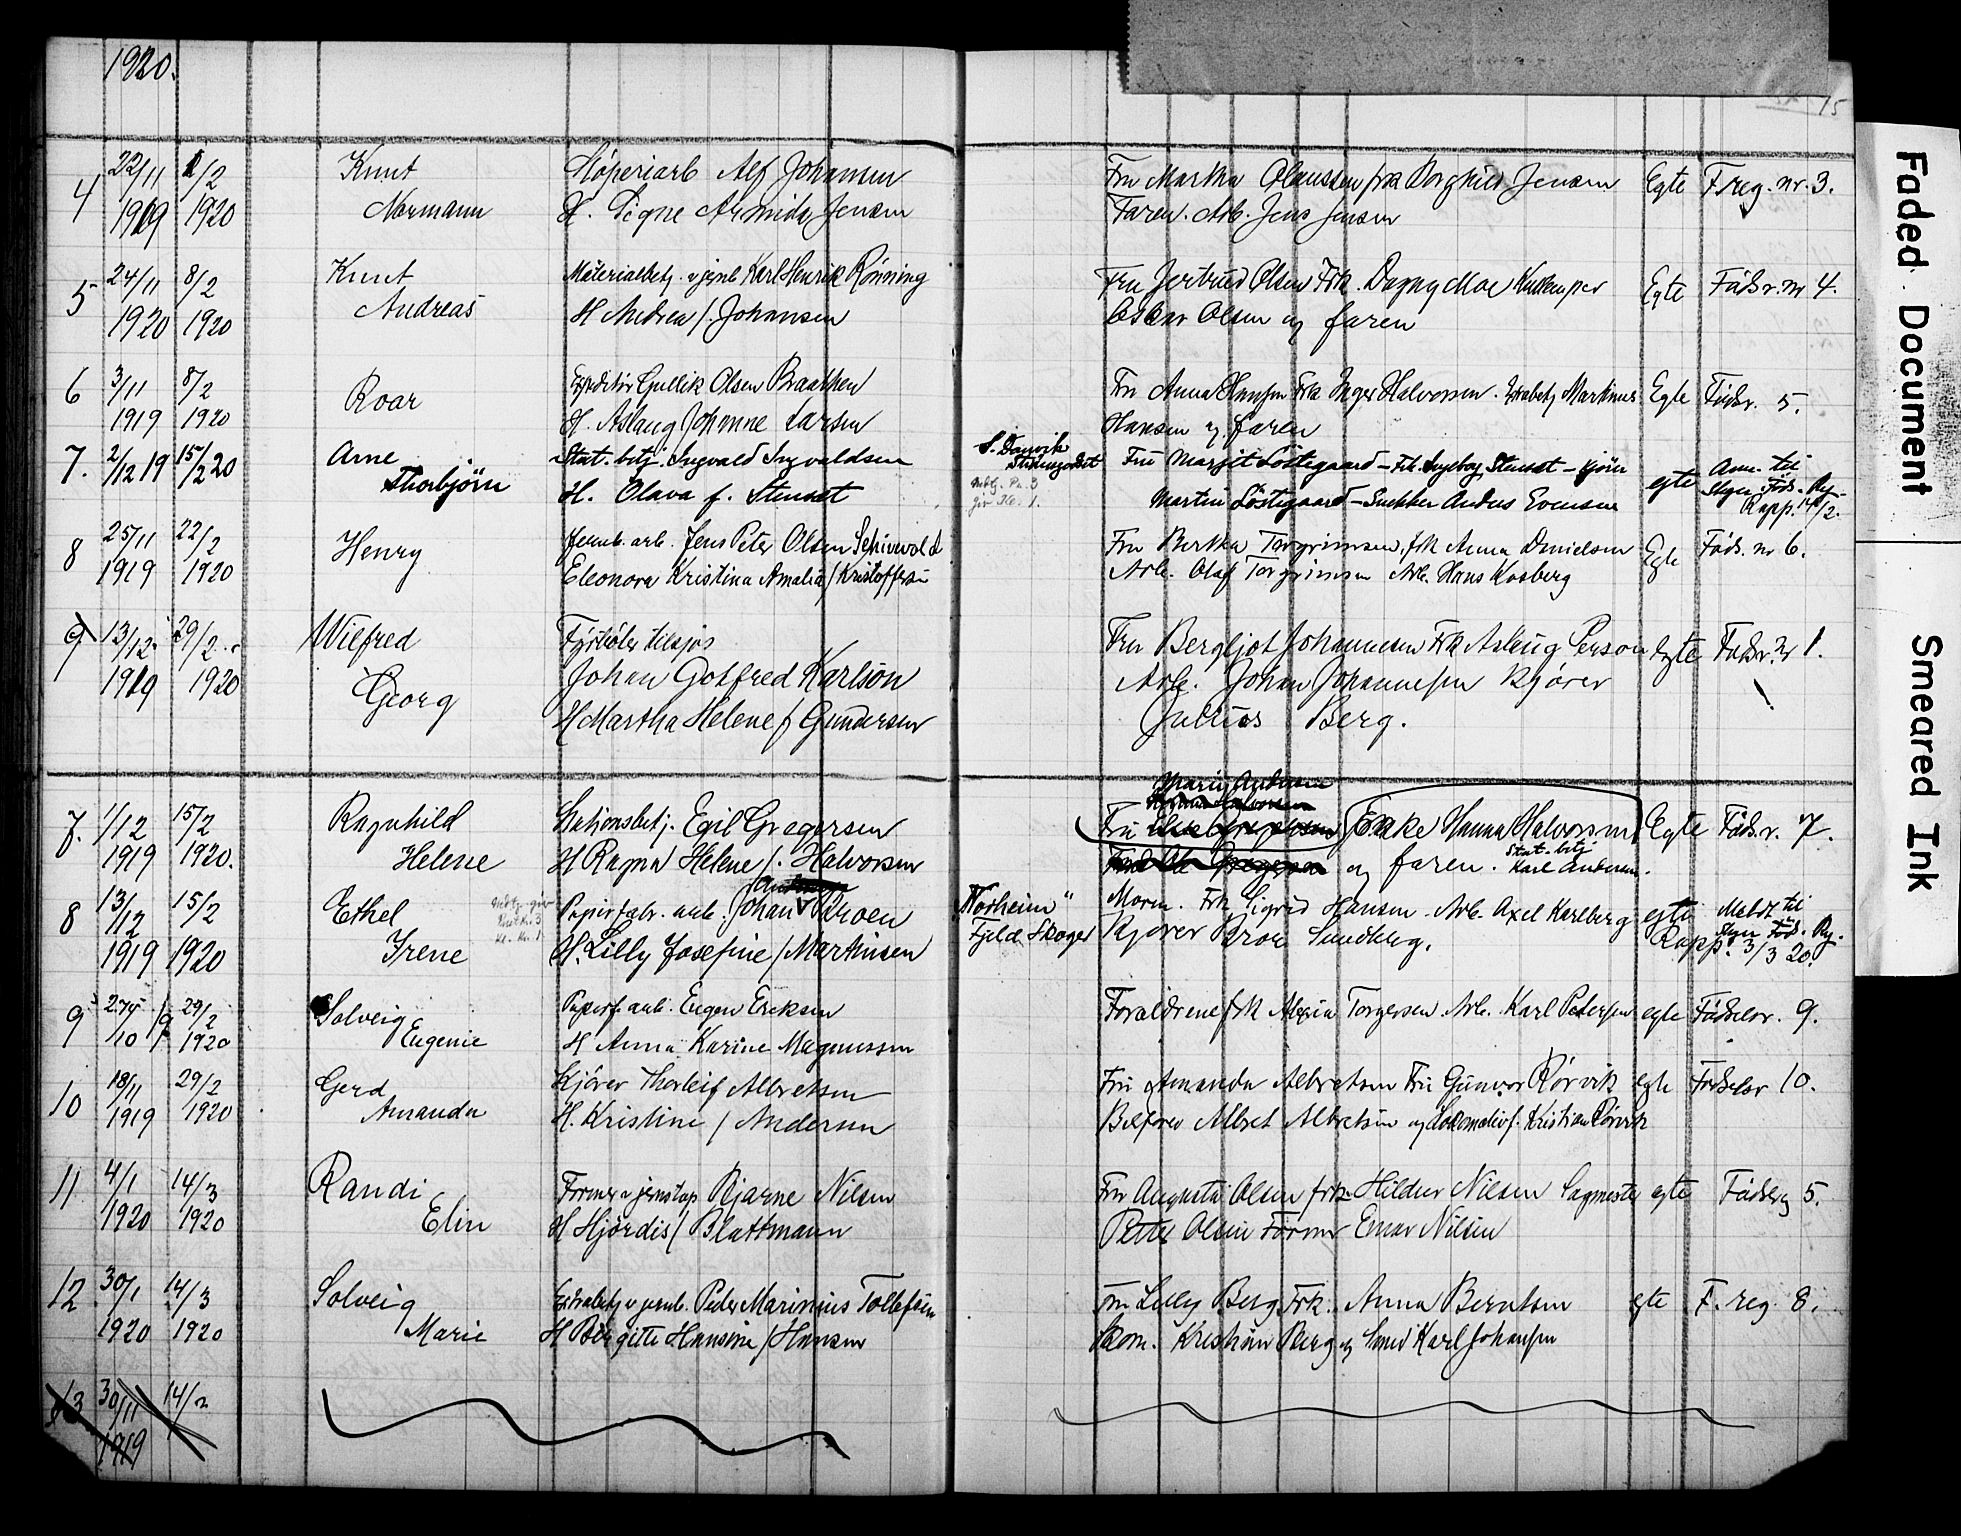 1920.
15
4 22/11 1/2 Knut Støperiarb Alf Johansen Fru Martha Olaussen frk Borghild Jensen Egte F reg. nr. 3.
1919 1920 Normann H. Signe Armida Jensen Faren. Arb. Jens Jensen
5 24/11 8/2 Knut Materialbetj. v jernb. Karl Henrik Rönning Fru Jertrud Olsen Frk. Dagny Moe Egte Föds r. nr 4.
1920 1920 Andreas H Andrea f. Johansen Oskar Olsen og faren
6 3/11 8/2 Roar Expeditör Gullik Olsen Braathen Fru Anna Hansen Frk Inger Halvorsen. Martinus Egte Födsr. 5.
1919 1920 H. Aslaug Johanne Larsen Hansen og faren
7. 2/12 19 15/2 20 Arne Stat. betj. Ingvald Ingvaldsen S. Danvik Fru Margit Löstegaard - Frk. Ingeborg Stenset - Kjörer egte Anm. til
Thorbjörn H. Olava f. Stenset Martin Löstegaard - Snekker Anders Evensen Skger. Föds. Reg. Rapp. 14/2.
8 25/11 22/2 Henry Jernb. arb. Jens Peter Olsen Fru Bertha Torgrimsen, frk Anna Danielsen Egte Föds. nr 6.
1919 1920 Eleonora Kristina Amalia f Kristoffersen Arb. Olaf Torgrimsen Arb. Hans Kosberg
9 13/12. 29/2 Wilfred Fyrböter tilsjøs Fru Bergljot Johannesen Frk Aslaug Person Egte Födsr. nr 1.
1919 1920 Georg Johan Gotfred Karlsön Arb. Johan Johannesen Kjører
H Martha Helene f Gundersen Julius Berg.
Marie Andersen
7. 1/12 15/2 Ragnhild Stationsbetj. Egil Gregersen Fru Frk Hanna Halvorsen Egte Födsr. 7.
1919 1920. Helene H Ragna Helene f. Halvorsen og faren. Stat. betj Karl Andersen.
8 13/12 15/2 Ethel Papirfabr. arb. Johan Khoen "Norheim" Morm. Frk Sigrid Hansen. Arb. Axel Karlberg egte Meldt til
1919 1920 Irene H. Lilly Josefine f Martinsen Fjeld Skoger Kjörer Broe Sundberg. Skger Föd. Reg. Rapp. 3/3 20.
9 27/10 19 29/2 Solveig Papirf. arb. Eugen Eriksen Foraldrene frk Torgersen Arb. Karl Petersen egte Födselsr. 9.
1920 Eugenie H Anna Karine Magnussen
10 18/11 29/2 Gerd Kjörer Thorleif Albretsen Fru Amanda Albretsen Fru Gunvor Rörvik egte Födselsr 10.
1919 1920 Amanda H. Kristine f Andersen Albret Albretsen og Lokomotivf. Kristian Rörvik
11 4/1 14/3 Randi Former v jernstøp Bjarne Nilsen Fru Augusta Olsen frk Hildur Nilsen Sagmester egte Födselreg 5.
1920 1920 Elin H Hjördis f Blattmann Petter Olsen Former Einar Nilsen
12 30/1 14/3 Solveig Extrabetj v jernb. Peder Marinius Tollefsen Fru Lilly Berg Frk. Anna Berntsen egte F. reg. 8.
1920 1920 Marie H Birgitte Hansine f Hansen Skom. Kristian Berg og Smed Karl Johansen
13 30/11 14/2
1919
Faded Document
Smeared Ink